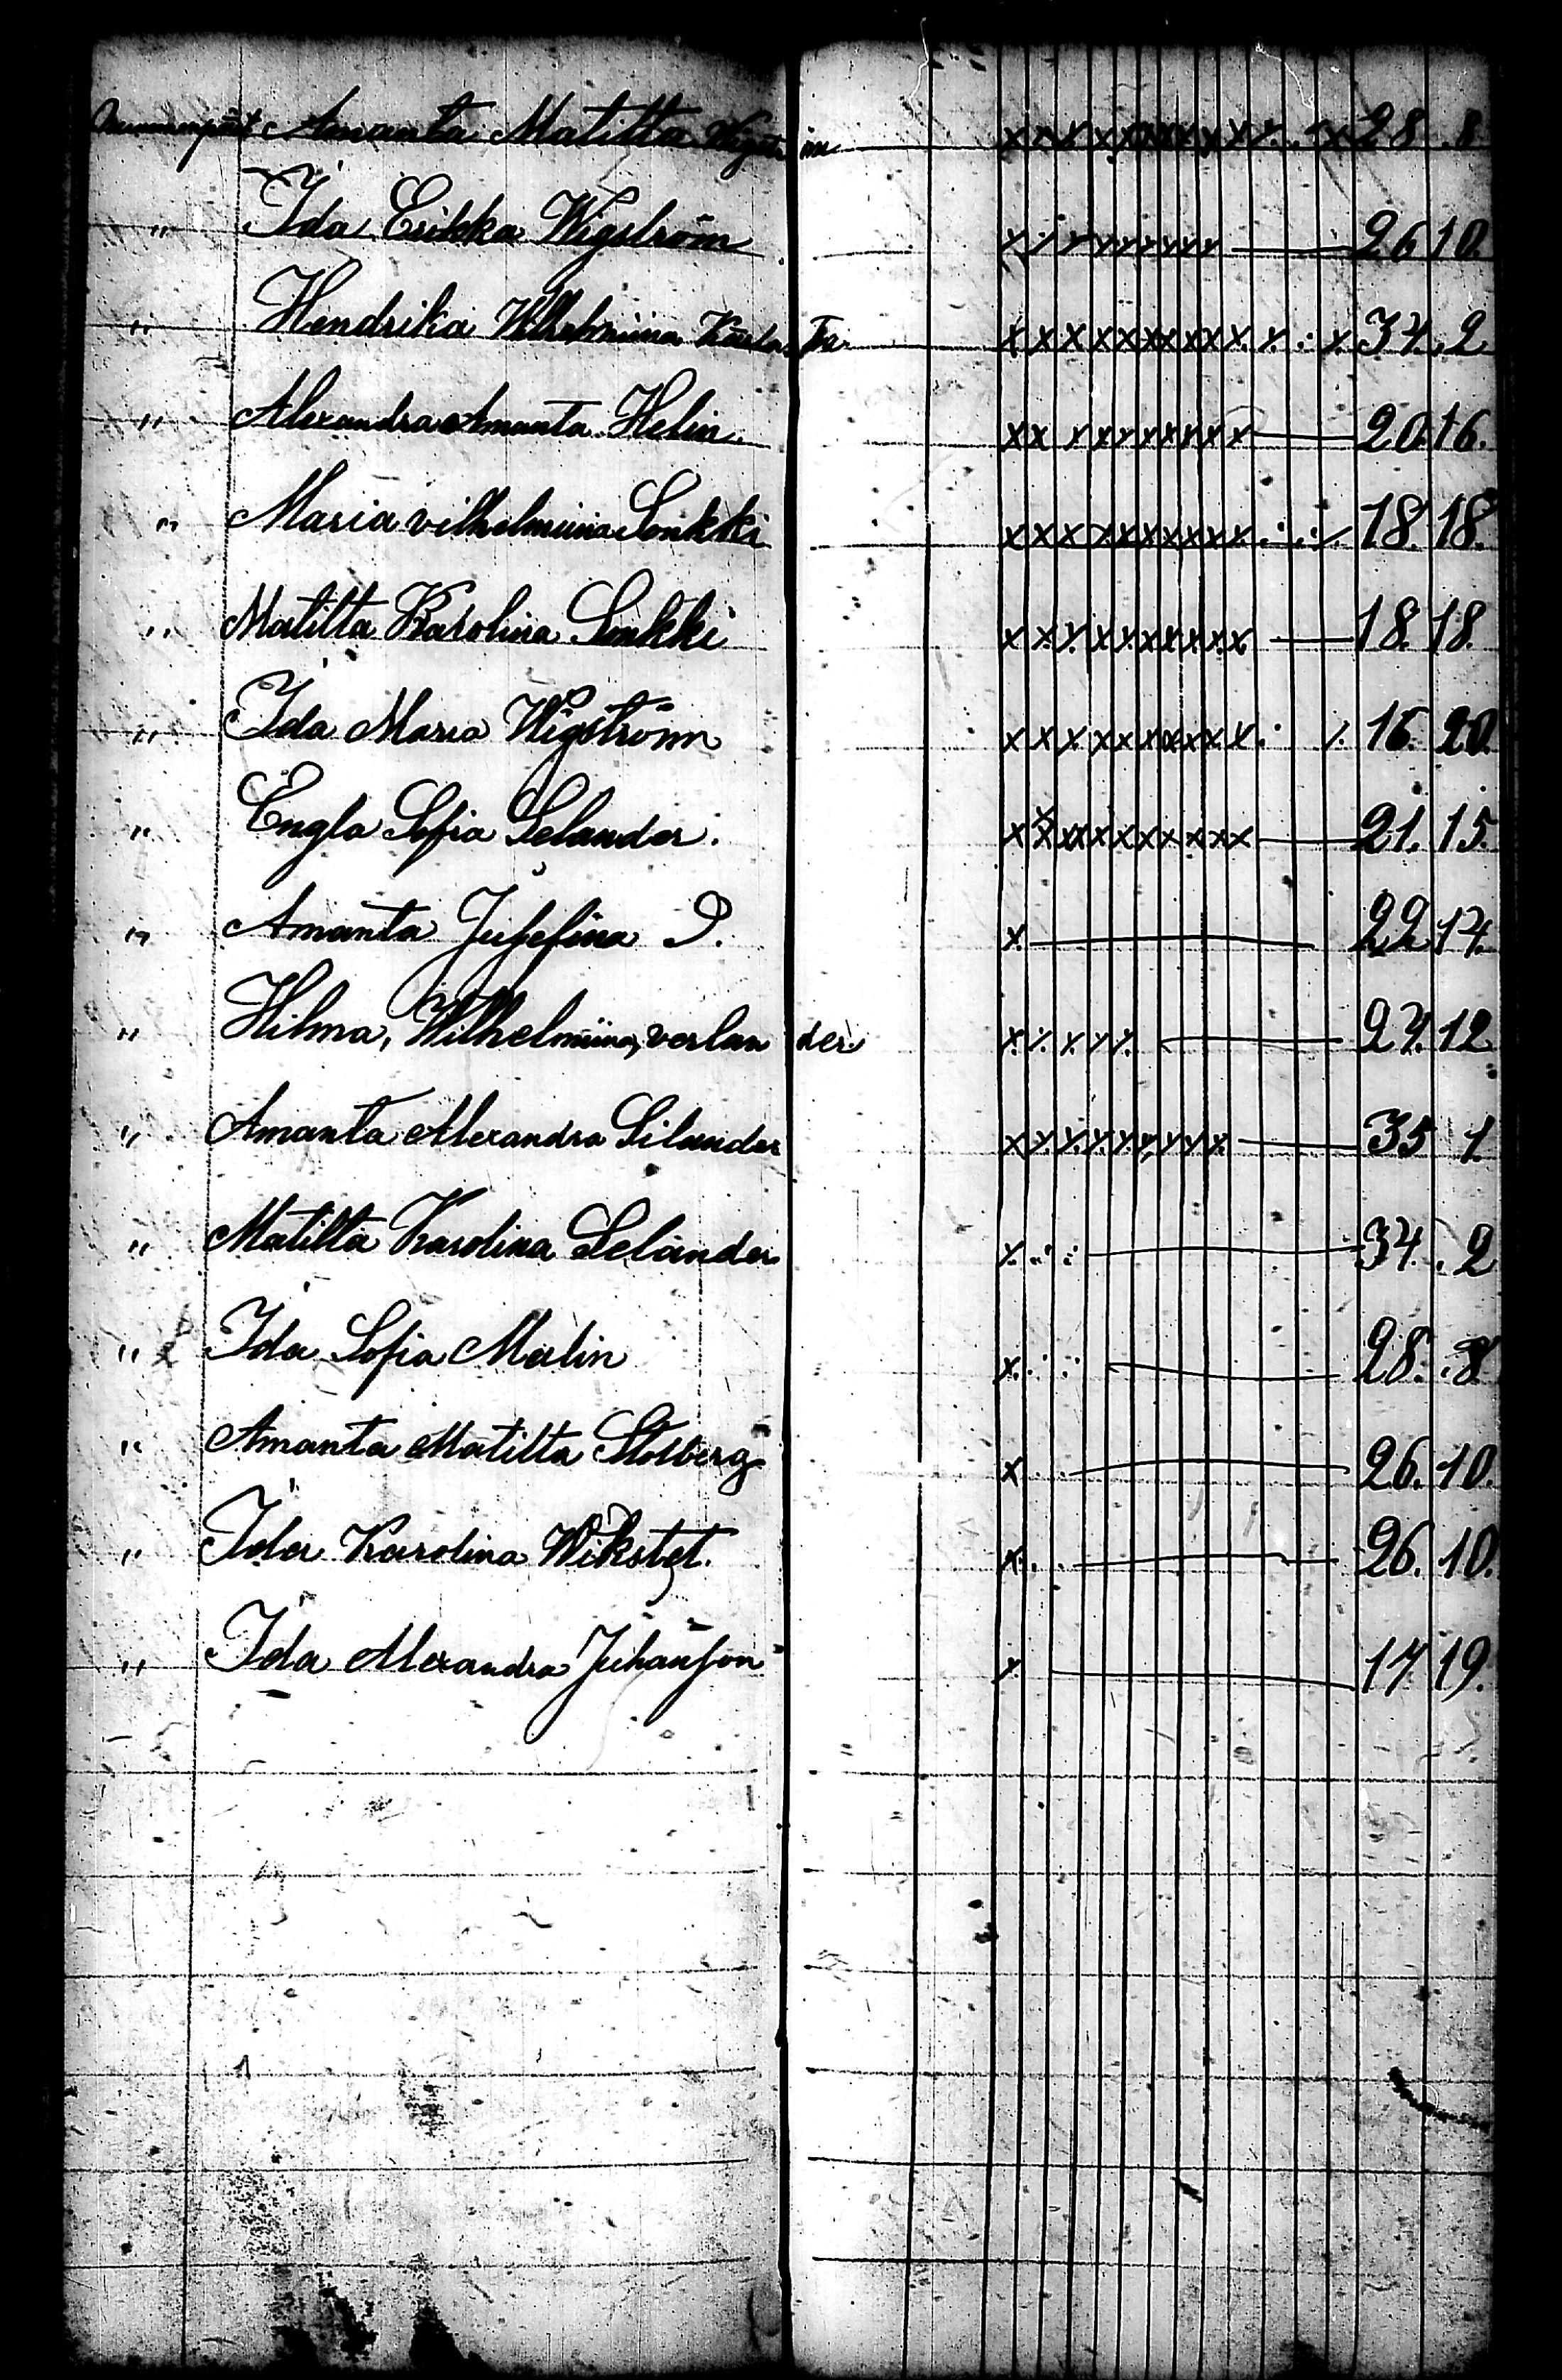 Nummenpäät Amanta Matilta Wigströ im x x x x x x x x x x x . . x 28. 8.
" Ida Erikka Wigström x x x x x x x x x 26 10.
" Hendrika Wilhelmiina Karla Ta. x x x x x x x x x x x . x 34. 2
" Alexandra Amanta Helin. x x x x x x x x x x 20. 16.
" Maria vilhelmiina Sonkki x x x x x x x x x x 18. 18.
" Matilta Karolina Sonkki x x x x x x x x x x 18. 18.
" Ida Maria Wigström x x x x x x x x x x 16. 20.
" Engla Sofia Selander. x x x x x x x x x x 21. 15.
" Amanta Jusefina S. x 22 14.
" Hilma, Wilhelmiina, verlan der. x x x x x 24. 12
" Amanta Alexandra Silander x x x x x x x x x 35 1
" Matilta Karolina Selander x 34. 2
" Ida Sofia Malin x 28. 8
" Amanta Matilta Stolberg x 26. 10.
" Ida Karolina Wikstet. x 26. 10.
" Ida Alexandra Juhanson x 17. 19.